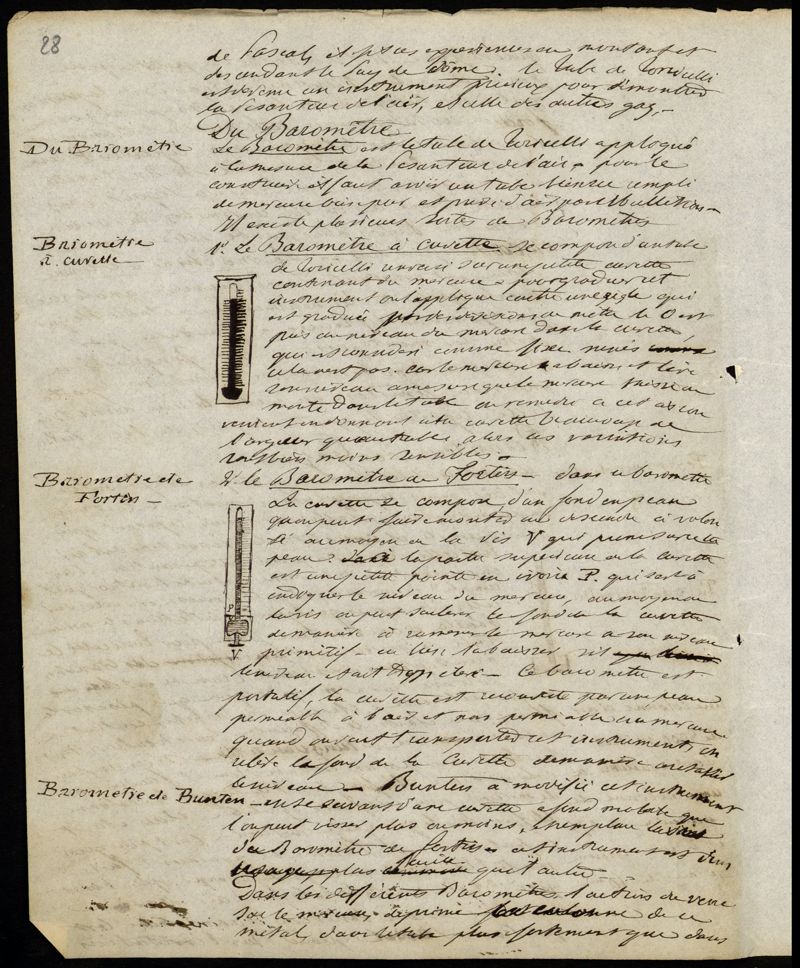 28
de Pascal, et ses experiences en montant et
descendant le Puy de Dôme. le tube de Toricelli
est devenu un instrument precieux pour démontrer
la Pesanteur de l'air, et celle des autres gaz,
Du Baromètre
Du Baromètre
Le Baromètre est le tube de Toricelli appliqué
à la mesure de la Pesanteur de l'air - pour le
construire il faut avoir un tube bien sec rempli
de mercure bien pur et privé d'air par l'ébullition -
Il existe plusieurs sortes de Baromètres
Baromètre
à cuvette
1° Le Baromètre à cuvette se compose d'un tube
de Toricelli renversé sur une petite cuvette
contenant du mercure - pour graduer cet
instrument on l'applique contre une règle qui
est graduée au mètre le 0 est
pris au niveau du mercure dans la cuvette,
qui est considéré comme fixe mais
cela n'est pas. car le mercure abaisse et lève
son niveau a mesure que le mercure baisse ou
monte dans le tube on remedie a cet
en donnant à la cuvette beaucoup de
largeur alors ces variations
sont bien moins sensibles -
Baromètre de
Fortin -
2° le Baromètre de Fortin - dans ce baromètre
La cuvette se compose d'un fond en peau
qu'on peut faire monter ou descendre à volon
té au moyen de la vis V qui presse sur la
peau. la partie superieure de la cuvette
est une petite pointe en ivoire P. qui sert à
indiquer le niveau du mercure, au moyen de
la vis on peut soulever le fond de la cuvette
de manière à ramener le mercure a son niveau
primitif - ou bien l'abaisser si
le niveau etait trop élevé - Ce baromètre est
portatif, la cuvette est recouverte par une peau
permeable à l'air et non permeable au mercure
quand on veut transporter cet instrument, on
la fond de la cuvette de manière
le niveau -
P
V
Baromètre de Bunten
Bunten a modifié cet instrument
en se servant d'une cuvette a fond mobile que
l'on peut visser plus ou moins,
du Baromètre de Fortin cet instrument est d'un
plus facile que l'autre -
Dans les différents Baromètres l'action du verre
sur le mercure déprime la colonne de ce
métal dans le tube plus fortement que dans